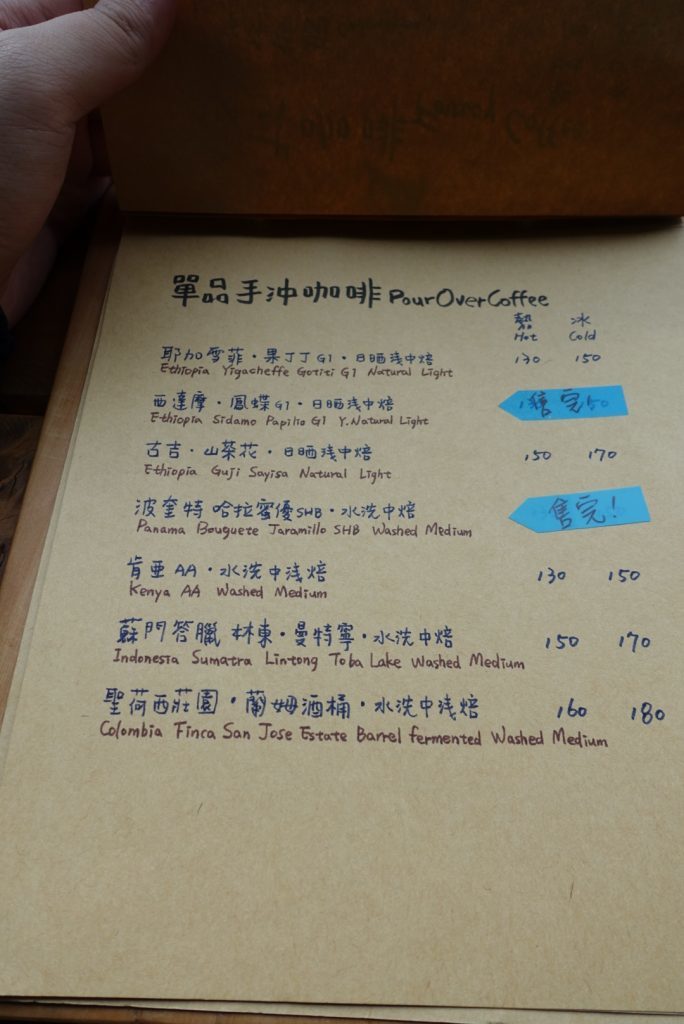 單品手沖咖啡 Pour Over Coffee
熱 冰
Hot Cold
耶加雪菲・果丁丁 G1・日晒浅中焙 130 150
Ethiopia Yigacheffe Gotiti G1 Natural Light
西達摩・鳳蝶 G1・日晒浅中焙 售完
Ethiopia Sidamo Papilio G1 Y.Natural Light
古吉・山茶花・日晒浅中焙 150 170
Ethiopia Guji Sayisa Natural Light
波奎特 哈拉蜜優 SHB・水洗中焙 售完!
Panama Bouguete Jaramillo SHB Washed Medium
肯亞 AA・水洗中浅焙 130 150
Kenya AA Washed Medium
蘇門答臘 林東・曼特寧・水洗中焙 150 170
Indonesia Sumatra Lintong Toba Lake Washed Medium
聖荷西莊園・蘭姆酒桶・水洗中浅焙 160 180
Colombia Finca San Jose Estate Barrel fermented Washed Medium